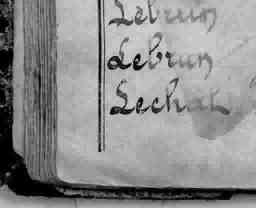 Lebrun
Lebrun
Lechat